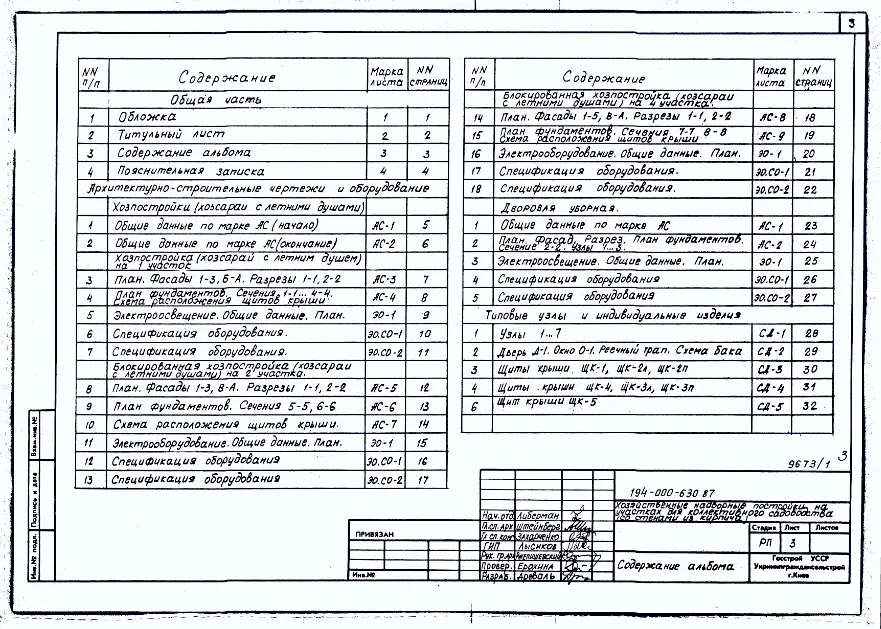 3
NN п/п Содержание Марка листа NN страниц
Общая часть
1 Обложка 1 1
2 Титульный лист 2 2
3 Содержание альбома 3 3
4 Пояснительная записка 4 4
Архитектурно-строительные чертежи и оборудование
Хозпостройки (хозсараи с летними душами)
1 Общие данные по марке АС (начало) АС-1 5
2 Общие данные по марке АС (окончание) АС-2 6
Хозпостройка (хозсарай с летним душем)
на 1 участок
3 План. Фасады 1-3, Б-А. Разрезы 1-1, 2-2 АС-3 7
4 План фундаментов. Сечения 1-1... 4-4.
Схема расположения щитов крыши. АС-4 8
5 Электроосвещение. Общие данные. План. ЭО-1 9
6 Спецификация оборудования. ЭО.СО-1 10
7 Спецификация оборудования. ЭО.СО-2 11
Блокированная хозпостройка (хозсараи
с летними душами) на 2 участка.
8 План. Фасады 1-3, В-А. Разрезы 1-1, 2-2 АС-5 12
9 План фундаментов. Сечения 5-5, 6-6 АС-6 13
10 Схема расположения щитов крыши. АС-7 14
11 Электрооборудование. Общие данные. План. ЭО-1 15
12 Спецификация оборудования ЭО.СО-1 16
13 Спецификация оборудования ЭО.СО-2 17
NN п/п Содержание Марка листа NN страниц
Блокированная хозпостройка (хозсараи
с летними душами) на 4 участка.
14 План. Фасады 1-5, В-А. Разрезы 1-1, 2-2 АС-8 18
15 План фундаментов. Сечения 7-7 8-8
Схема расположения щитов крыши АС-9 19
16 Электрооборудование. Общие данные. План. ЭО-1 20
17 Спецификация оборудования. ЭО.СО-1 21
18 Спецификация оборудования. ЭО.СО-2 22
Дворовая уборная.
1 Общие данные по марке АС АС-1 23
2 План. Фасад, Разрез. План фундаментов.
Сечение 2-2. Узлы 1...3. АС-2 24
3 Электроосвещение. Общие данные. План. ЭО-1 25
4 Спецификация оборудования ЭО.СО-1 26
5 Спецификация оборудования ЭО.СО-2 27
Типовые узлы и индивидуальные изделия
1 Узлы 1...7 СД-1 28
2 Дверь Д-1. Окно О-1. Реечный трап. Схема бака СД-2 29
3 Щиты крыши ЩК-1, ЩК-2л, ЩК-2п СД-3 30
4 Щиты крыши ЩК-4, ЩК-3л, ЩК-3п СД-4 31
6 Щит крыши ЩК-5 СД-5 32
9673/1 3
194-000-630.87
Хозяйственные надворные постройки на
участках для коллективного садоводства
(со стенами из кирпича)
Нач. отд. Либерман
Гл.сп.арх. Штейнберг
Гл.сп.кон. Захарченко
ГИП Лысиков
Рук.гр.арх.
Провер. Ерохина
Разраб. Дроваль
Стадия Лист Листов
РП 3
Содержание альбома
Госстрой УССР
Укрниипграждансельстрой
г. Киев
ПРИВЯЗАН
Инв.№
Взам.инв.№
Подпись и дата
Инв.№ подл.